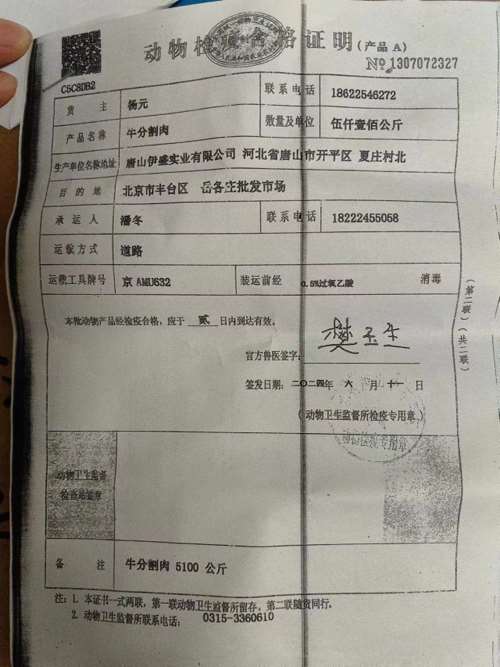 动物检疫合格证明(产品 A)
№ 1307072327
C5C8DB2
货主 杨元 联系电话 18622546272
产品名称 牛分割肉 数量及单位 伍仟壹佰公斤
生产单位名称地址 唐山伊盛实业有限公司 河北省唐山市开平区 夏庄村北
目的地 北京市丰台区 岳各庄批发市场
承运人 潘冬 联系电话 18222455058
运载方式 道路
运载工具牌号 京 AMU632 装运前经 0.5%过氧乙酸 消毒
本批动物产品经检疫合格，应于 贰 日内到达有效。
官方兽医签字： 樊玉生
签发日期：二〇二四年 六 月 十一 日
(动物卫生监督所检疫专用章)
动物检疫专用章
动物卫生监督
检查站签章
备注 牛分割肉 5100 公斤
注：1. 本证书一式两联，第一联动物卫生监督所留存，第二联随货同行。
2. 动物卫生监督所联系电话： 0315-3360610
(第二联)(共二联)